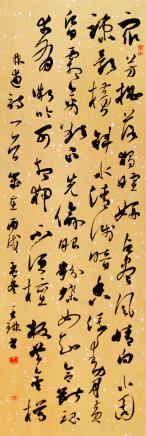 眾芳搖落獨暄妍占盡風情向小園
疏影橫斜水清淺暗香浮動月黃
昏霜禽欲下先偷眼粉蝶如知合斷魂
幸有微吟可相狎不須檀板共金樽
林逋詩一首歲在丙戌